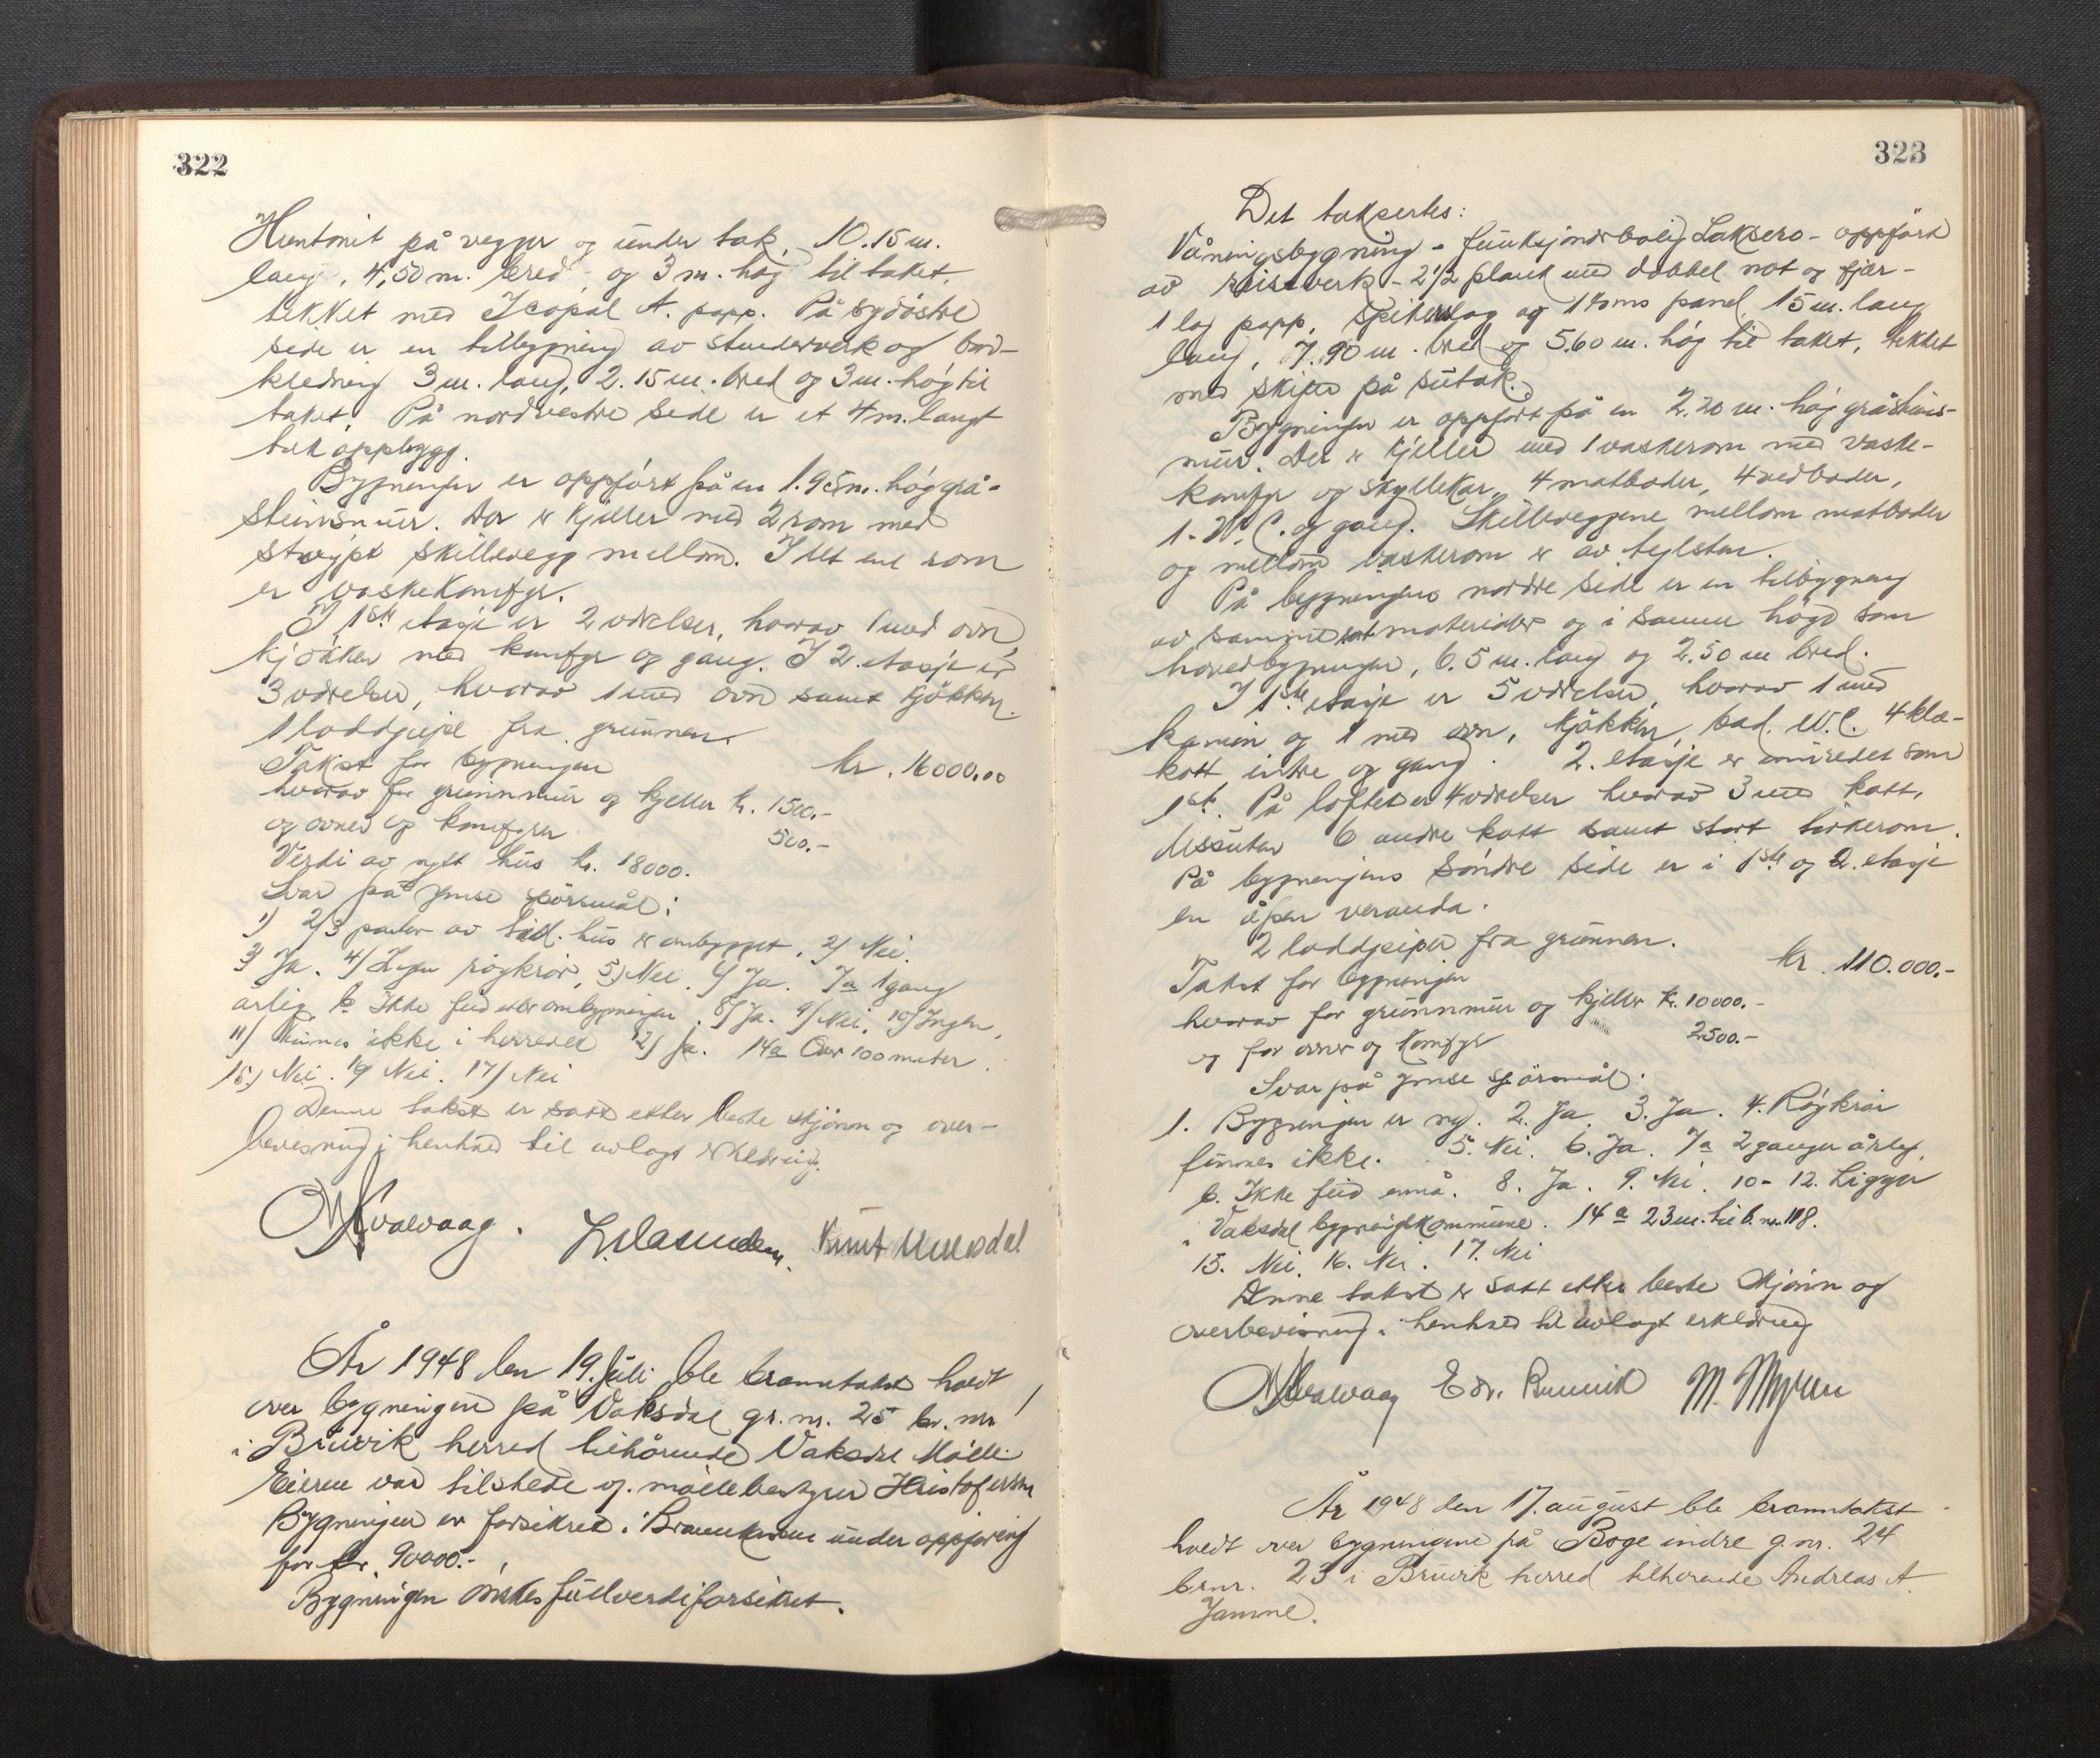 322
Huntonit på vegger og under tak, 10.15 m.
lang, 4,50 m. bred, og 3 m. høg til taket,
tekket med Icopal A. papp. På sydøstre
side er en tilbygning av stenderverk og bord-
kledning 3 m. lang, 2.15 m. bred og 3 m. høg til
taket. På nordvestre side er et 4 m. langt
takoppbygg.
Bygningen er oppført på en 1.95 m. høg grå-
steinsmur. Der er kjeller med 2 rom med
støypt skillevegg mellom. I det ene rom
er vaskekomfyr.
I 1ste etasje er 2 værelser, hvorav 1 med ovn,
kjøkken med komfyr og gang. I 2. etasje er
3 værelser, hvorav 1 med ovn samt kjøkken.
1 loddpipe fra grunnen.
Takst for bygningen kr. 16000.00
hvorav for grunnmur og kjeller kr. 1500.-
og ovner og komfyrer 500.-
Verdi av nytt hus kr. 18000.
Svar på ymse spørsmål:
1) 2/3 parter av hus er ombygget. 2) Nei.
3) Ja. 4) Ingen røykrør, 5) Nei. 6) Ja. 7a 1 gang
årlig b. Ikke feid etter ombygningen. 8) Ja. 9) Nei. 10) Ingen,
11) Finnes ikke i herredet 12) Ja. 14a Over 100 meter.
15.) Nei. 16 Nei. 17) Nei
Denne takst er satt etter beste skjønn og over-
bevisning i henhold til avlagt erklæring.
O Kvalvaag. Knut
År 1948 den 19. juli ble branntakst holdt
over bygningen på Vaksdal gr. nr. 25 br. nr. 1
i Bruvik herred tilhørende Vaksdal Mølle.
Eieren var tilstede v. møllebestyrer Kristofersen
Bygningen er forsikret i Brannkassen under oppføring
for kr. 90000.-
Bygningen ønskes fullverdiforsikret.
323
Det taksertes:
Våningsbygning - funksjonærbolig Laksero - oppført
av reisverk - 2 1/2 plank med dobbel not og fjær -
1 lag papp, spikerslag og 1 toms panel, 15 m. lang
lang, 7.90 m. bred og 5.60 m. høg til taket, tekket
med skifer på sutak.
Bygningen er oppført på en 2.20 m. høg gråsteins-
mur. Der er kjeller med 1 vaskerom med vaske-
komfyr og skyllekar, 4 matboder, 4 vedboder,
1. W.C. og gang. Skilleveggene mellom matboder
og mellom vaskerom er av teglsten.
På bygningens nordre side er en tilbygning
av samme materialer og i samme høgd som
hovedbygningen, 6.5 m. lang og 2.50 m bred.
I 1ste etasje er 5 værelser, hvorav 1 med
kamin og 1 med ovn, kjøkken, bad. W.C. 4 kle-
kott, entre og gang. 2. etasje er innredet som
1ste. På loftet er 4 værelser hvorav 3 med kott,
dessuten 6 andre kott samt stort tørkerom.
På bygningens søndre side er i 1ste og 2. etasje
en åpen veranda.
2 loddpiper fra grunnen.
Takst for bygningen kr. 110.000.-
hvorav for grunnmur og kjeller kr. 10000.-
og for ovner og komfyr 2500.-
Svar på ymse spørsmål:
1. Bygningen er ny. 2. Ja. 3. Ja. 4. Røykrør
finnes ikke. 5. Nei. 6. Ja. 7a 2 ganger årleg.
b. Ikke feid ennå. 8. Ja. 9. Nei. 10-12. Ligger
i Vaksdal bygningskommune. 14a 23 m. til b. nr. 118.
15. Nei. 16. Nei. 17. Nei
Denne takst er satt etter beste skjønn og
overbevisning i henhold til avlagt erklæring
O Kvalvaag Edv. M. Myren
År 1948 den 17. august ble branntakst
holdt over bygningene på Boge indre g. nr. 24
br.nr. 23 i Bruvik herred tilhørende Andreas A.
Jamne.